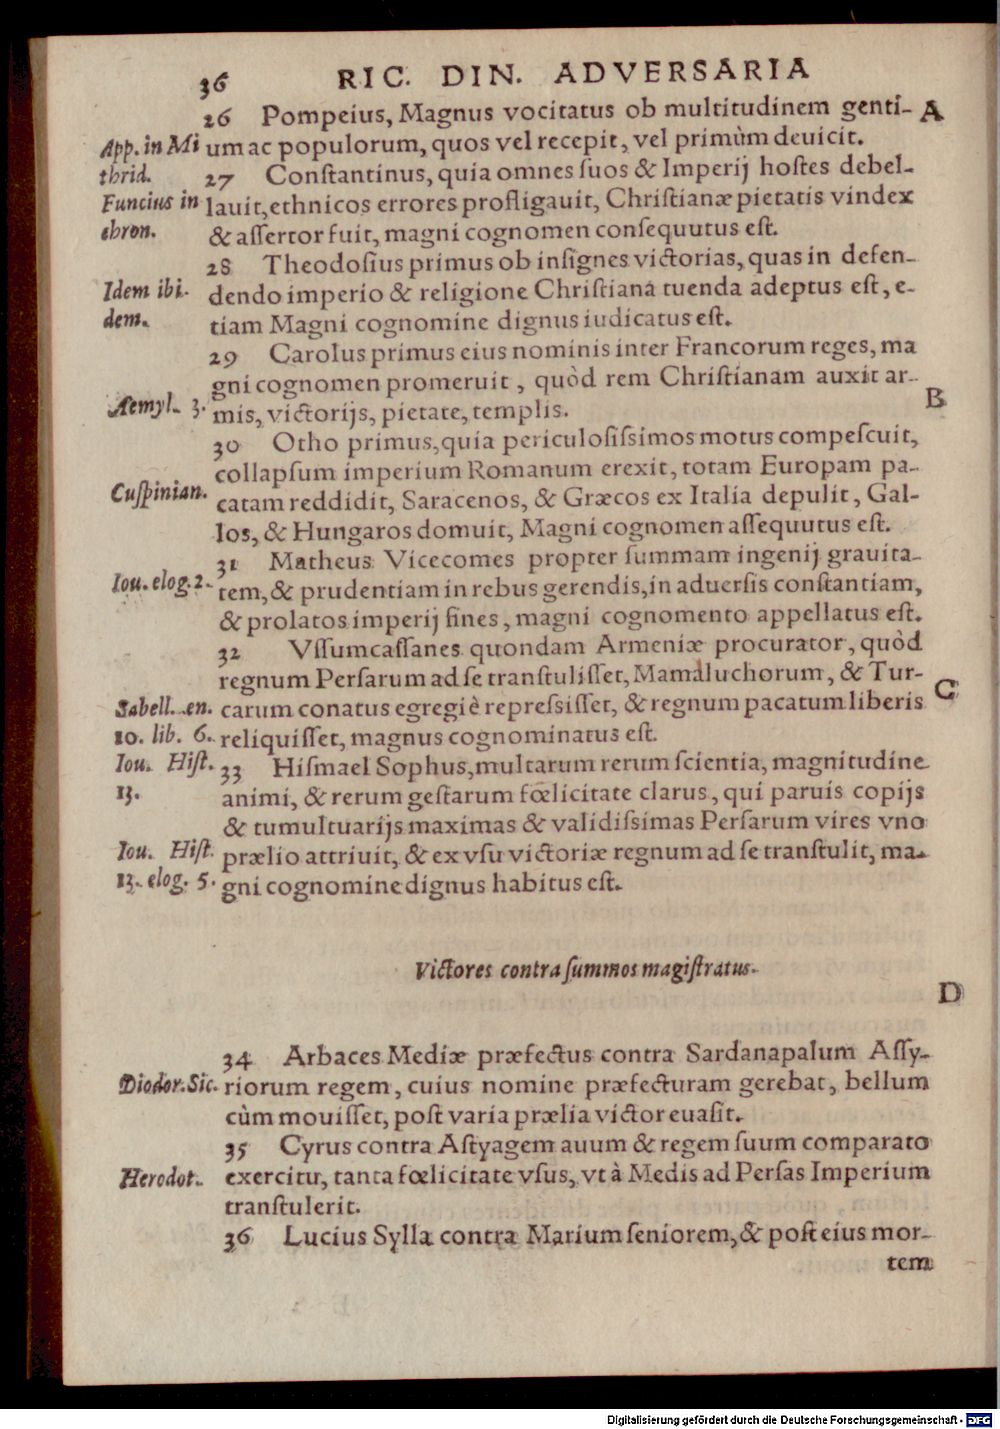 36 RIC. DIN. ADVERSARIA
26 Pompeius, Magnus vocitatus ob multitudinem genti- A
App. in Mi um ac populorum, quos vel recepit, vel primùm deuicit.
thrid. 27 Conſtantinus, quia omnes ſuos & Imperij hoſtes debel-
Funcius in lauit, ethnicos errores profligauit, Chriſtianæ pietatis vindex
chron. & aſſertor fuit, magni cognomen conſequutus eſt.
28 Theodoſius primus ob inſignes victorias, quas in defen-
Idem ibi- dendo imperio & religione Chriſtiana tuenda adeptus eſt, e-
dem. tiam Magni cognomine dignus iudicatus eſt.
29 Carolus primus eius nominis inter Francorum reges, ma
gni cognomen promeruit, quòd rem Chriſtianam auxit ar- B
Aemyl. 3. mis, victorijs, pietate, templis.
30 Otho primus, quia periculoſiſsimos motus compeſcuit,
collapſum imperium Romanum erexit, totam Europam pa-
Cuſpinian. catam reddidit, Saracenos, & Græcos ex Italia depulit, Gal-
los, & Hungaros domuit, Magni cognomen aſſequutus eſt.
31 Matheus Vicecomes propter ſummam ingenij grauita-
Iou. elog. 2. tem, & prudentiam in rebus gerendis, in aduerſis conſtantiam,
& prolatos imperij fines, magni cognomento appellatus eſt.
32 Vſſumcaſſanes quondam Armeniæ procurator, quòd
regnum Perſarum ad ſe tranſtuliſſet, Mamaluchorum, & Tur- C
Sabell. en. carum conatus egregiè repreſsiſſet, & regnum pacatum liberis
10. lib. 6. reliquiſſet, magnus cognominatus eſt.
Iou. Hiſt. 33 Hiſmael Sophus, multarum rerum ſcientia, magnitudine
13. animi, & rerum geſtarum fœlicitate clarus, qui paruis copijs
& tumultuarijs maximas & validiſsimas Perſarum vires vno
Iou. Hiſt. prælio attriuit, & ex vſu victoriæ regnum ad ſe tranſtulit, ma-
13. elog. 5. gni cognomine dignus habitus eſt.
Victores contra ſummos magiſtratus.
D
34 Arbaces Mediæ præfectus contra Sardanapalum Aſſy-
Diodor. Sic. riorum regem, cuius nomine præfecturam gerebat, bellum
cùm mouiſſet, poſt varia prælia victor euaſit.
35 Cyrus contra Aſtyagem auum & regem ſuum comparato
Herodot. exercitu, tanta fœlicitate vſus, vt à Medis ad Perſas Imperium
tranſtulerit.
36 Lucius Sylla contra Marium ſeniorem, & poſt eius mor-
tem
Digitalisierung gefördert durch die Deutsche Forschungsgemeinschaft - DFG